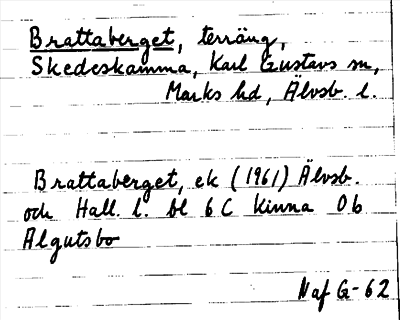 Brattaberget, terräng,
Skedeskamma, Karl Gustavs sn,
Marks hd, Älvsb. l.
Brattaberget, ek (1961) Älvsb.
och Hall. l. bl 6 C Kinna 0 b
Algutsbo
Naf G-62